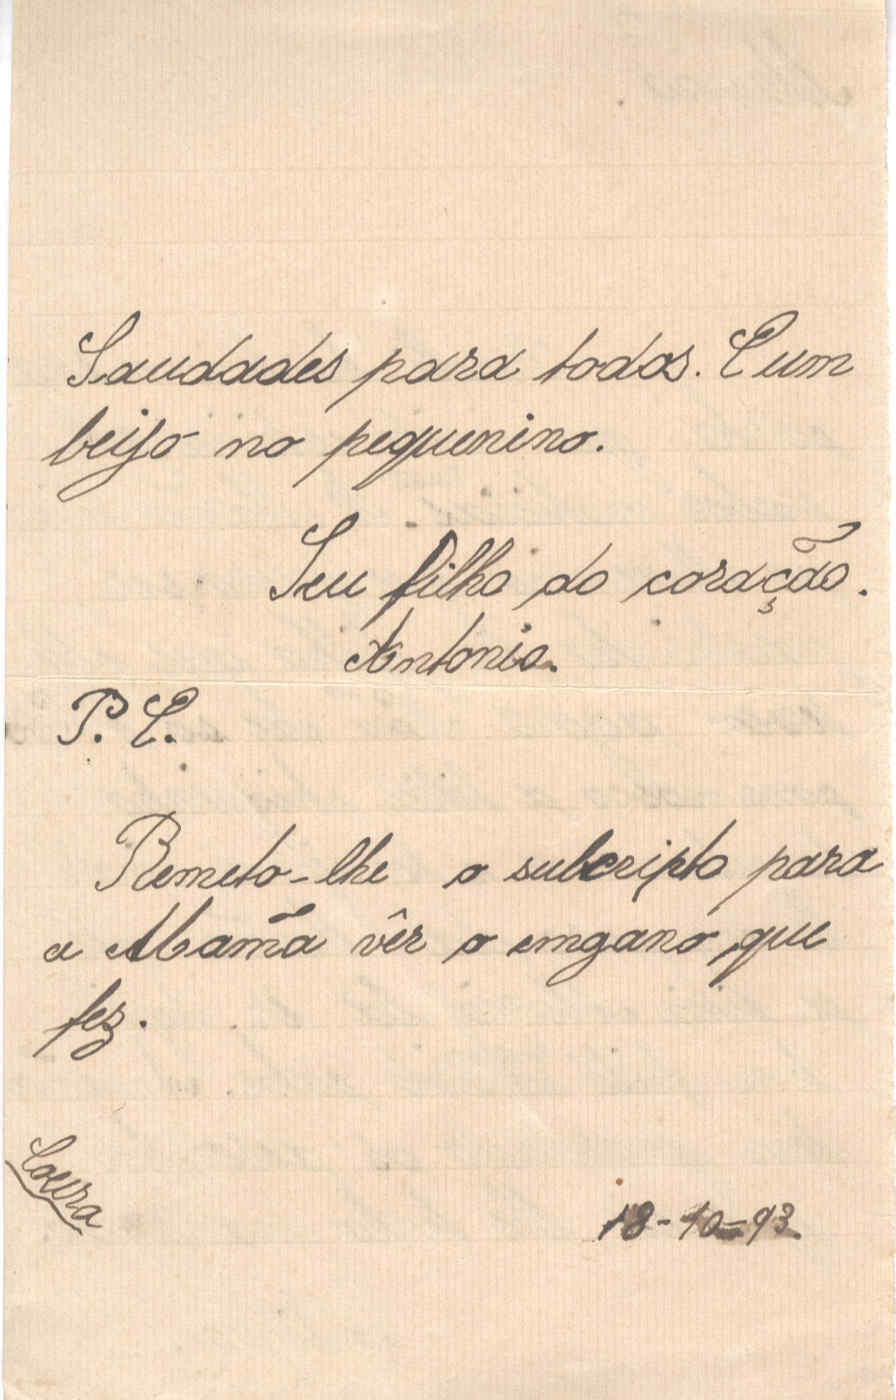 Saudades para todos. E um
beijo no pequenino.
Seu filho do coração.
Antonio.
P. E.
Remeto-lhe o subcripto para
a Mamã vêr o emgano que
fez.
Loura
18-10-93